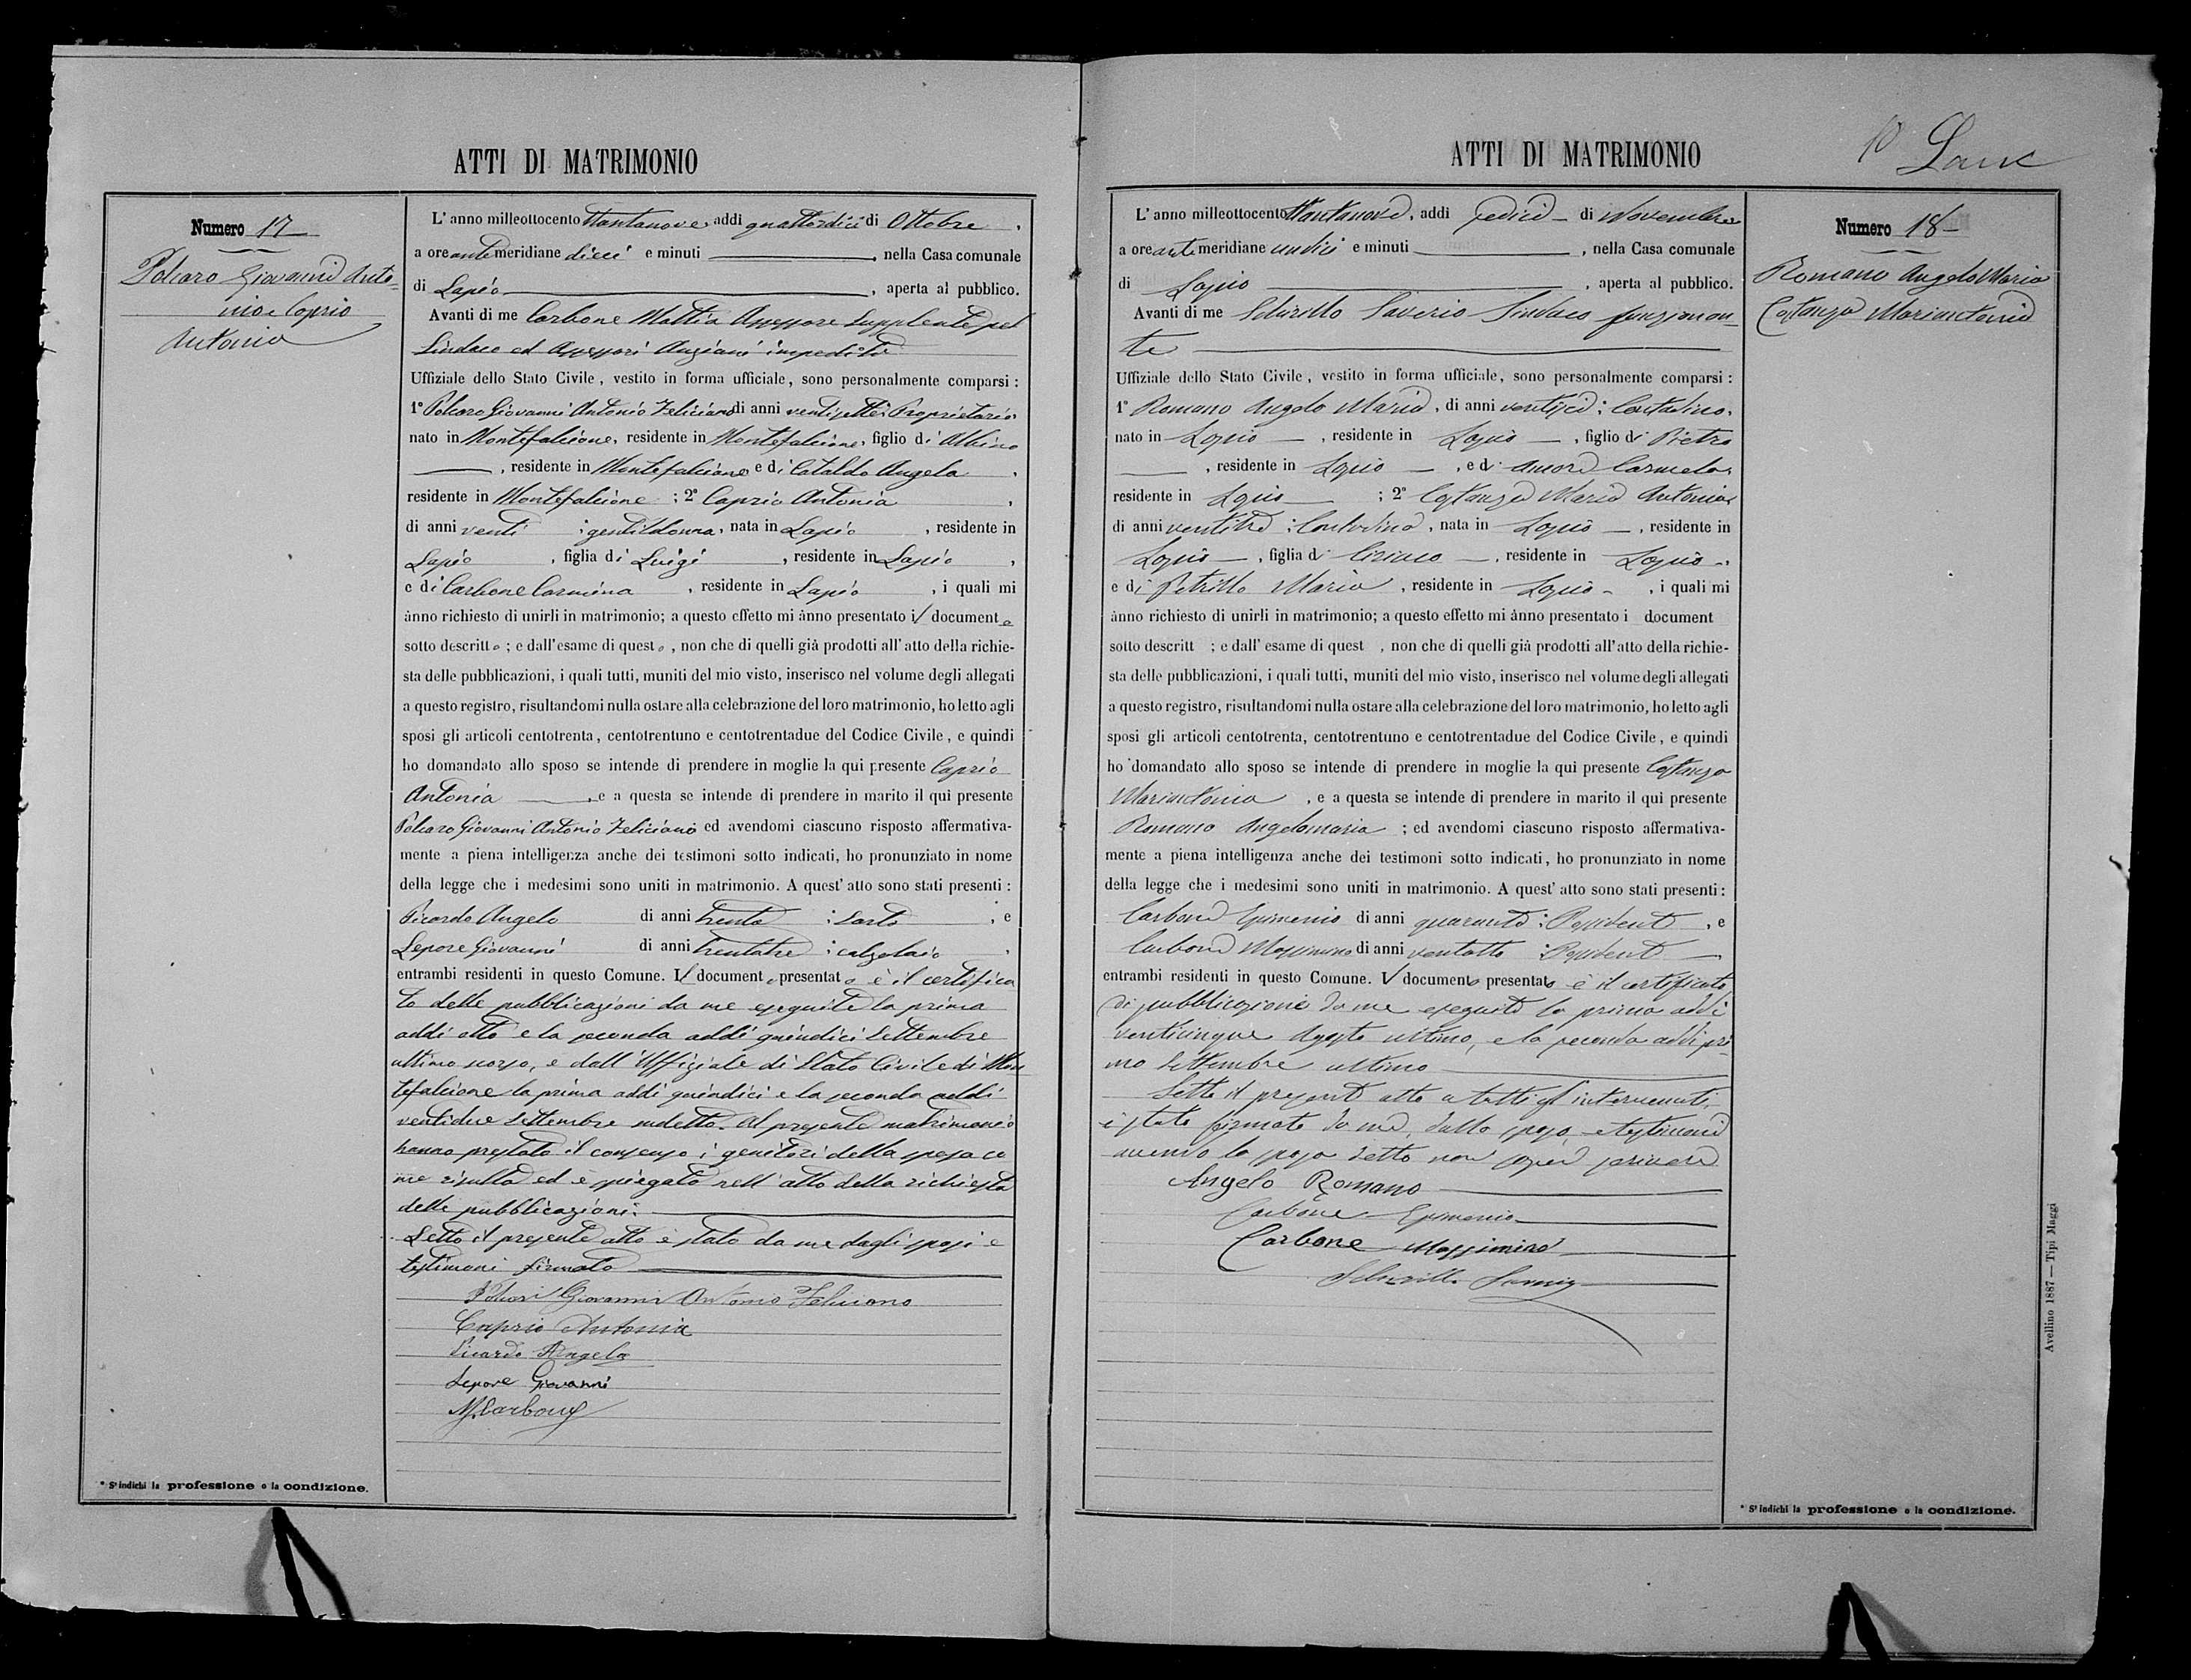 ATTI DI MATRIMONIO
Numero 17
Polcaro Giovanni Anto-
nio e Caprio
Antonia
L'anno milleottocento ottantanove, addi quattordici di Ottobre,
a ore antemeridiane dieci e minuti, nella Casa comunale
di Lapio, aperta al pubblico.
Avanti di me Carbone Mattia Assessore Supplente pel
Sindaco ed Assessori Anziani impediti
Uffiziale dello Stato Civile, vestito in forma ufficiale, sono personalmente comparsi:
1° Polcaro Giovanni Antonio Feliciano di anni ventisette; Proprietario,
nato in Montefalcione, residente in Montefalcione, figlio di Albino
, residente in Montefalcione e di Cataldo Angela,
residente in Montefalcione; 2° Caprio Antonia,
di anni venti; gentildonna, nata in Lapio, residente in
Lapio, figlia di Luigi, residente in Lapio,
e di Carbone Carmina, residente in Lapio, i quali mi
ànno richiesto di unirli in matrimonio; a questo effetto mi ànno presentato il documento
sotto descritto; e dall'esame di questo, non che di quelli già prodotti all'atto della richie-
sta delle pubblicazioni, i quali tutti, muniti del mio visto, inserisco nel volume degli allegati
a questo registro, risultandomi nulla ostare alla celebrazione del loro matrimonio, ho letto agli
sposi gli articoli centotrenta, centotrentuno e centotrentadue del Codice Civile, e quindi
ho domandato allo sposo se intende di prendere in moglie la qui presente Caprio
Antonia, e a questa se intende di prendere in marito il qui presente
Polcaro Giovanni Antonio Feliciano ed avendomi ciascuno risposto affermativa-
mente a piena intelligenza anche dei testimoni sotto indicati, ho pronunziato in nome
della legge che i medesimi sono uniti in matrimonio. A quest'atto sono stati presenti:
Picardo Angelo di anni trenta; Sarto, e
Lepore Giovanni di anni trentatre; calzolaio,
entrambi residenti in questo Comune. Il documento presentato è il certifica
to delle pubblicazioni da me eseguite la prima
addì otto e la seconda addì quindici Settembre
ultimo scorso, e dall'Uffiziale di Stato Civile di Mon
tefalcione la prima addì quindici e la seconda addì
ventidue Settembre sudetto. Al presente matrimonio
hanno prestato il consenso i genitori della sposa co
me risulta ed è spiegato nell'atto della richiesta
delle pubblicazioni.
Letto il presente atto è stato da me dagli sposi e
testimoni firmato
Polcari Giovanni Antonio Feliciano
Caprio Antonia
Picardo Angelo
Lepore Giovanni
M. Carbone
* Si indichi la professione o la condizione.
ATTI DI MATRIMONIO
10
Numero 18
Romano Angelo Maria
Costanza Mariantonia
L'anno milleottocento ottantanove, addi sedici di Novembre
a ore antemeridiane undici e minuti, nella Casa comunale
di Lapio, aperta al pubblico.
Avanti di me Schirillo Saverio Sindaco funzionan-
te
Uffiziale dello Stato Civile, vestito in forma ufficiale, sono personalmente comparsi:
1° Romano Angelo Maria, di anni ventisei; Contadino,
nato in Lapio, residente in Lapio, figlio di Pietro
, residente in Lapio, e di Amore Carmela,
residente in Lapio; 2° Costanza Maria Antonia,
di anni ventitre; Contadina, nata in Lapio, residente in
Lapio, figlia di Ciriaco, residente in Lapio,
e di Petrillo Maria, residente in Lapio, i quali mi
ànno richiesto di unirli in matrimonio; a questo effetto mi ànno presentato i document
sotto descritt; e dall'esame di quest, non che di quelli già prodotti all'atto della richie-
sta delle pubblicazioni, i quali tutti, muniti del mio visto, inserisco nel volume degli allegati
a questo registro, risultandomi nulla ostare alla celebrazione del loro matrimonio, ho letto agli
sposi gli articoli centotrenta, centotrentuno e centotrentadue del Codice Civile, e quindi
ho domandato allo sposo se intende di prendere in moglie la qui presente Costanza
Mariantonia, e a questa se intende di prendere in marito il qui presente
Romano Angelomaria; ed avendomi ciascuno risposto affermativa-
mente a piena intelligenza anche dei testimoni sotto indicati, ho pronunziato in nome
della legge che i medesimi sono uniti in matrimonio. A quest'atto sono stati presenti:
Carbone Epimenio di anni quaranta; Possidente, e
Carbone Massimino di anni ventotto; Possidente
entrambi residenti in questo Comune. Il documento presentato è il certificato
di pubblicazione da me eseguite la prima addì
venticinque Agosto ultimo, e la seconda addì pri
mo Settembre ultimo
Letto il presente atto a tutti gl'intervenuti,
è stato firmato da me, dallo sposo, e testimoni
avendo la sposa detto non saper scrivere
Angelo Romano
Carbone Epimenio
Carbone Massimino
Schirillo
* Si indichi la professione o la condizione.
Avellino 1887 — Tipi Maggi